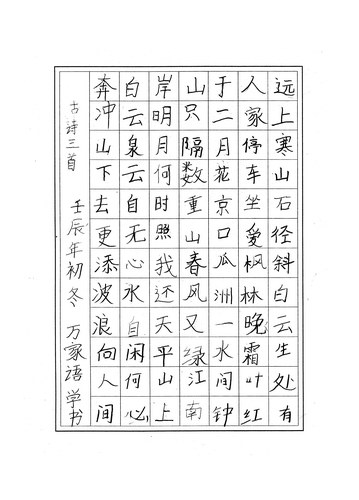 远上寒山石径斜白云生处有
人家停车坐愛枫林晚霜叶红
于二月花京口瓜洲一水间钟
山只隔数重山春风又绿江南
岸明月何时照我还天平山上
白云泉云自无心水自闲何必
奔冲山下去更添波浪向人间
古诗三首 壬辰年初冬 万家语学书